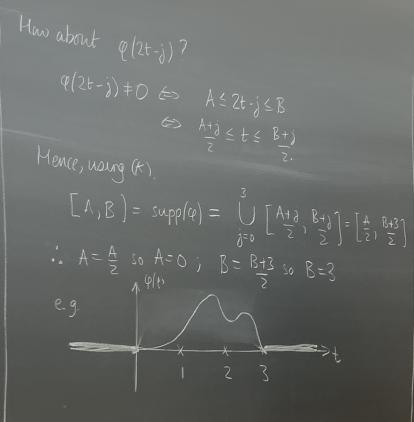 How about φ(2t-j)?
φ(2t-j)≠0 ⇔ A≤2t-j≤B
⇔ (A+j)/2 ≤ t ≤ (B+j)/2.
Hence, using (*),
[A,B] = supp(φ) = ⋃_{j=0}^{3} [(A+j)/2, (B+j)/2] = [A/2, (B+3)/2]
∴ A = A/2 so A=0 ; B = (B+3)/2 so B=3
e.g.
φ(t)
t
1 2 3